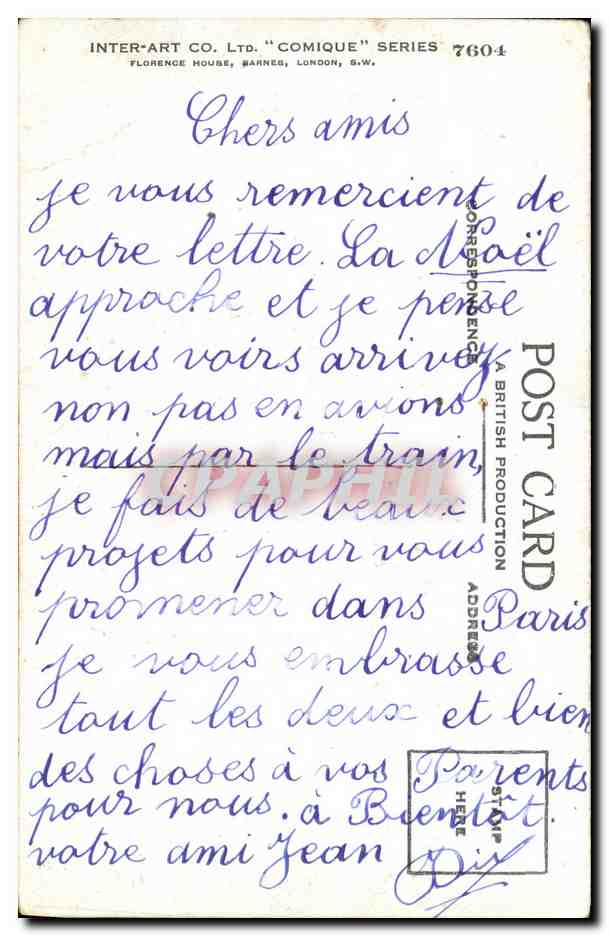 INTER-ART CO. LTD. "COMIQUE" SERIES 7604
FLORENCE HOUSE, BARNES, LONDON, S.W.
Chers amis
je vous remercient de
votre lettre. La Noël
approche et je pense
vous voirs arrivez
non pas en avions
mais par le train,
je fais de beaux
projets pour vous
promener dans Paris
je vous embrasse
tout les deux et bien
des choses à vos Parents
pour nous. à Bientôt.
votre ami Jean
POST CARD
A BRITISH PRODUCTION
CORRESPONDENCE
ADDRESS
STAMP
HERE
CPAPHIL